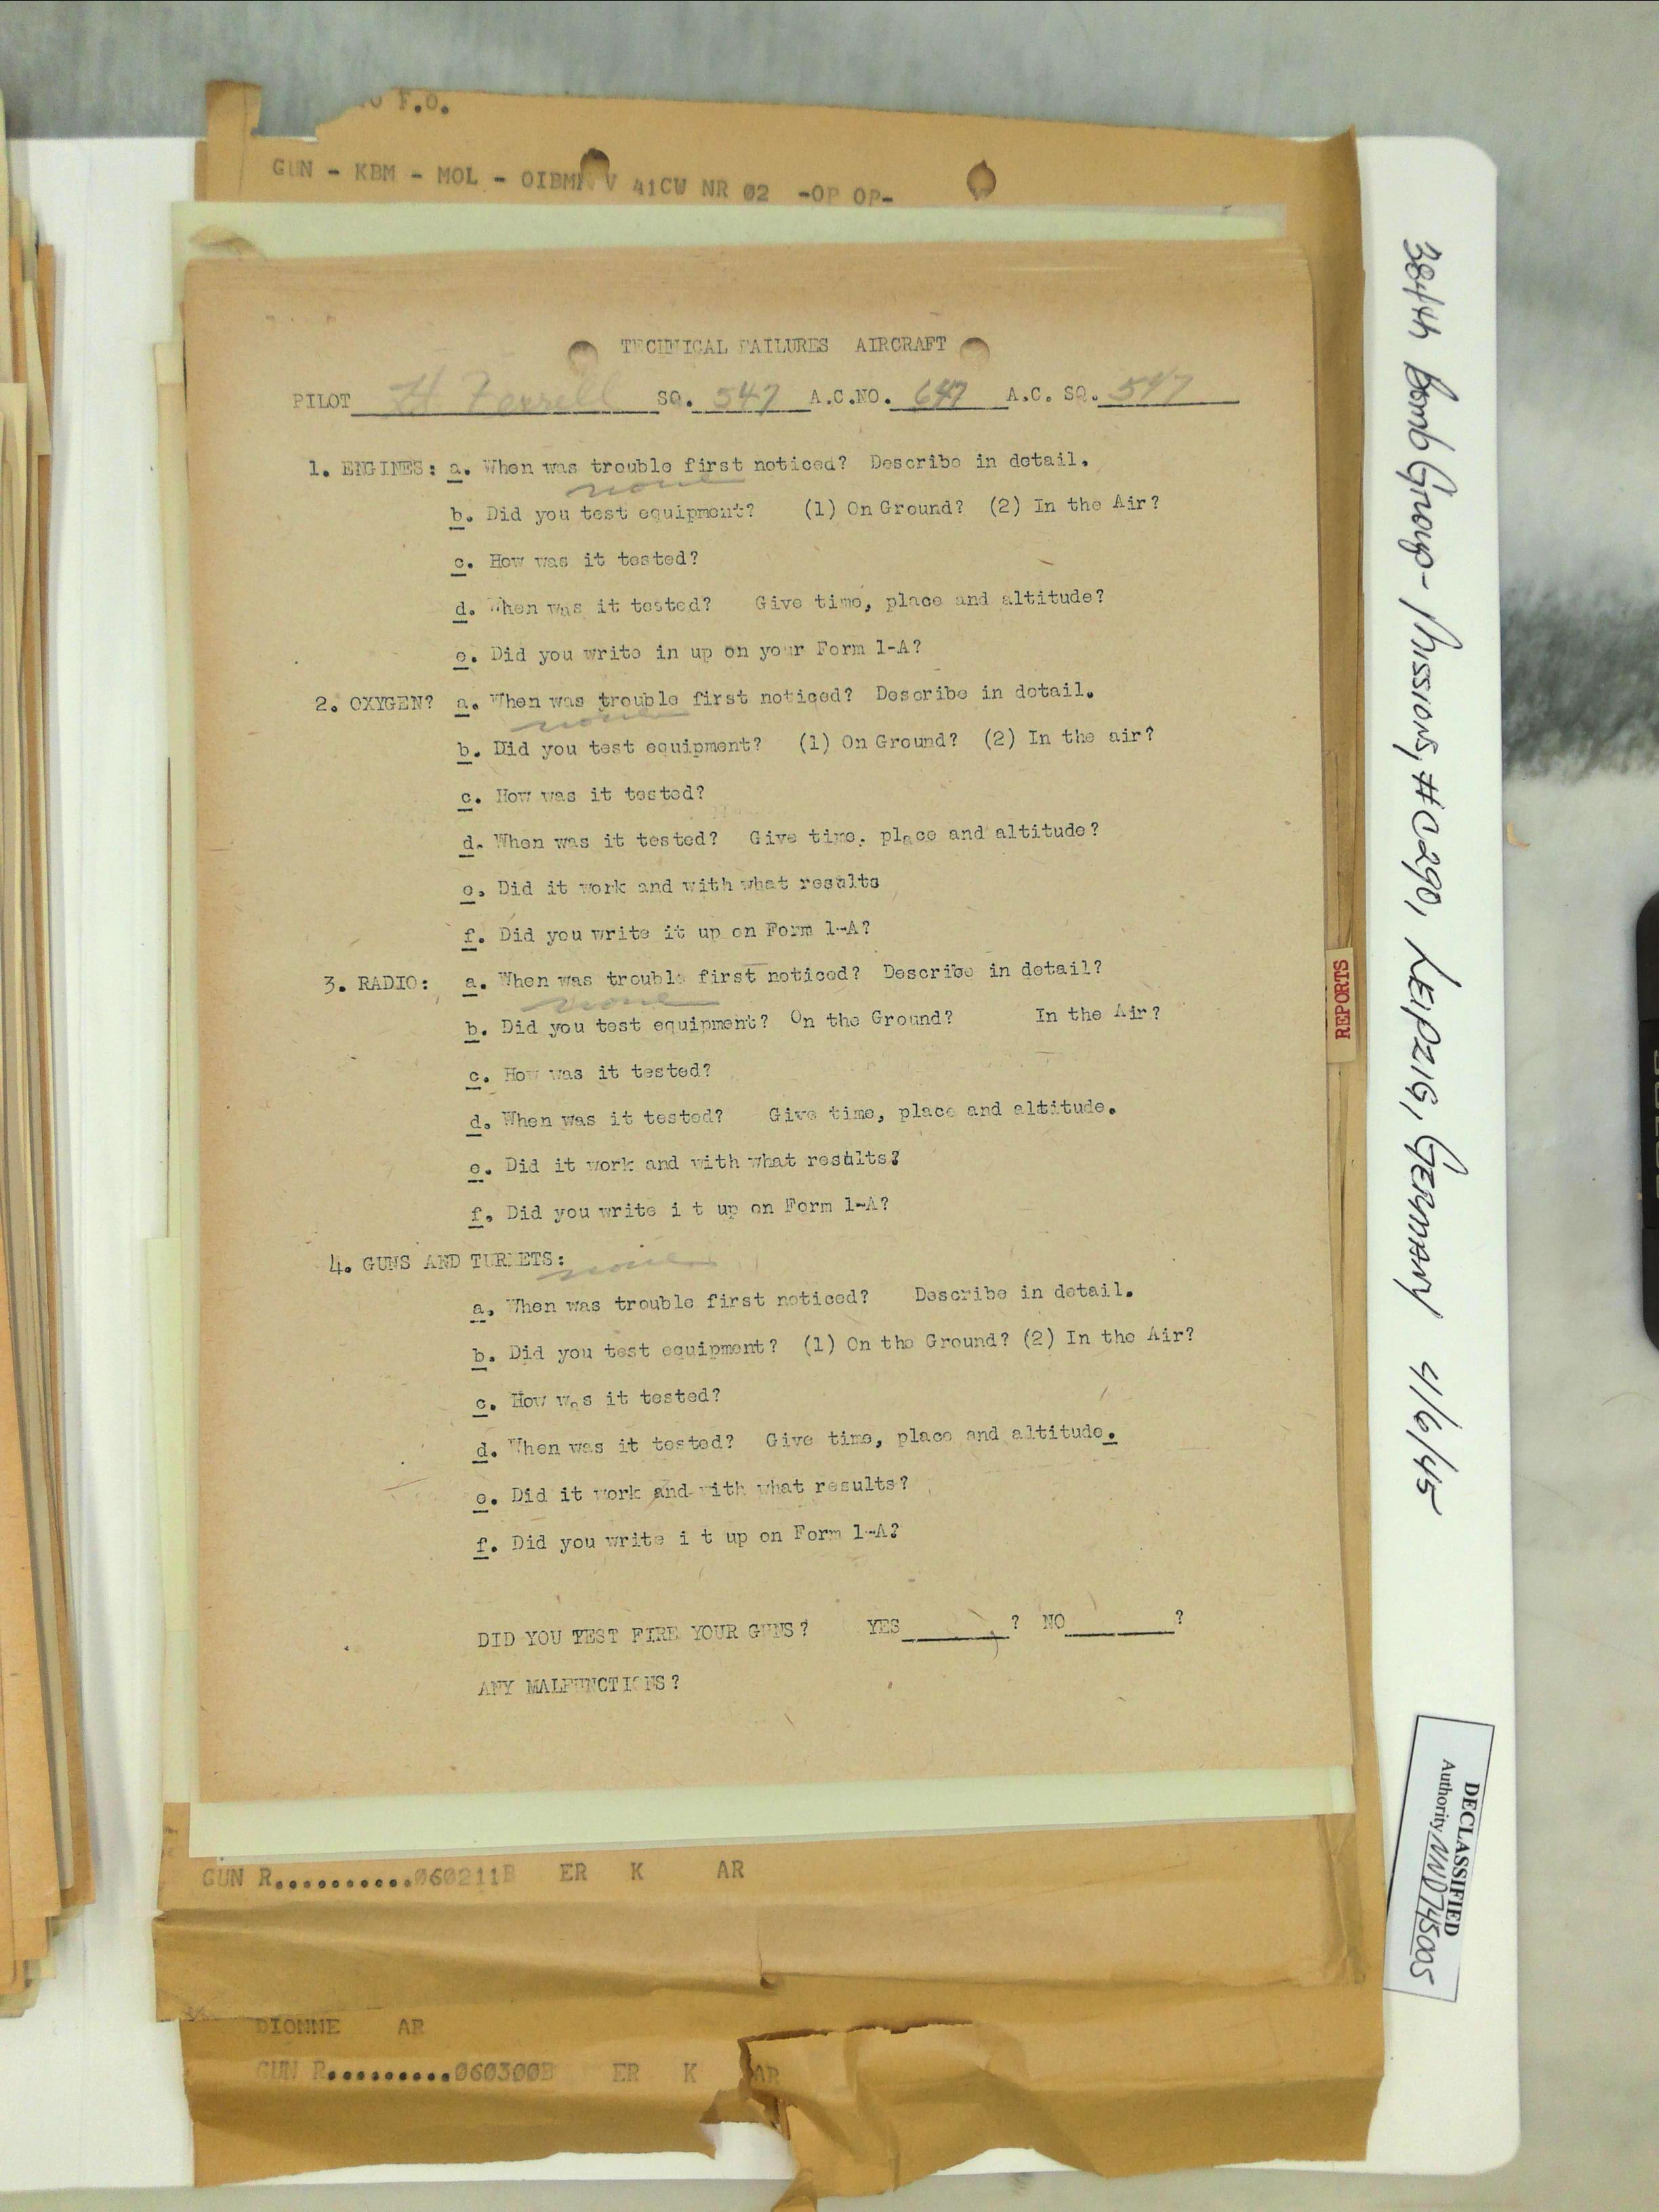 F.O.
GUN - KBM - MOL - OIBMA V 41CW NR 02 -OP OP-
TECHNICAL FAILURES AIRCRAFT
PILOT H. Ferrell SQ. 547 A.C.NO. 647 A.C. SQ. 547
1. ENGINES: a. When was trouble first noticed? Describe in detail.
none
b. Did you test equipment? (1) On Ground? (2) In the Air?
c. How was it tested?
d. When was it tested? Give time, place and altitude?
e. Did you write in up on your Form 1-A?
2. OXYGEN? a. When was trouble first noticed? Describe in detail.
none
b. Did you test equipment? (1) On Ground? (2) In the air?
c. How was it tested?
d. When was it tested? Give time. place and altitude?
e. Did it work and with what results
f. Did you write it up on Form 1-A?
3. RADIO: a. When was trouble first noticed? Describe in detail?
none
b. Did you test equipment? On the Ground? In the Air?
c. How was it tested?
d. When was it tested? Give time, place and altitude.
e. Did it work and with what results?
f. Did you write i t up on Form 1-A?
4. GUNS AND TURRETS: none
a. When was trouble first noticed? Describe in detail.
b. Did you test equipment? (1) On the Ground? (2) In the Air?
c. How was it tested?
d. When was it tested? Give time, place and altitude.
e. Did it work and with what results?
f. Did you write i t up on Form 1-A?
DID YOU TEST FIRE YOUR GUNS? YES ? NO ?
ANY MALFUNCTIONS?
GUN R..........060211B ER K AR
DIONNE AR
GUN R.........060300B ER K AR
REPORTS
384th Bomb Group - Mission, #C290, LEIPZIG, GERMANY 4/6/45
DECLASSIFIED
Authority NND745005